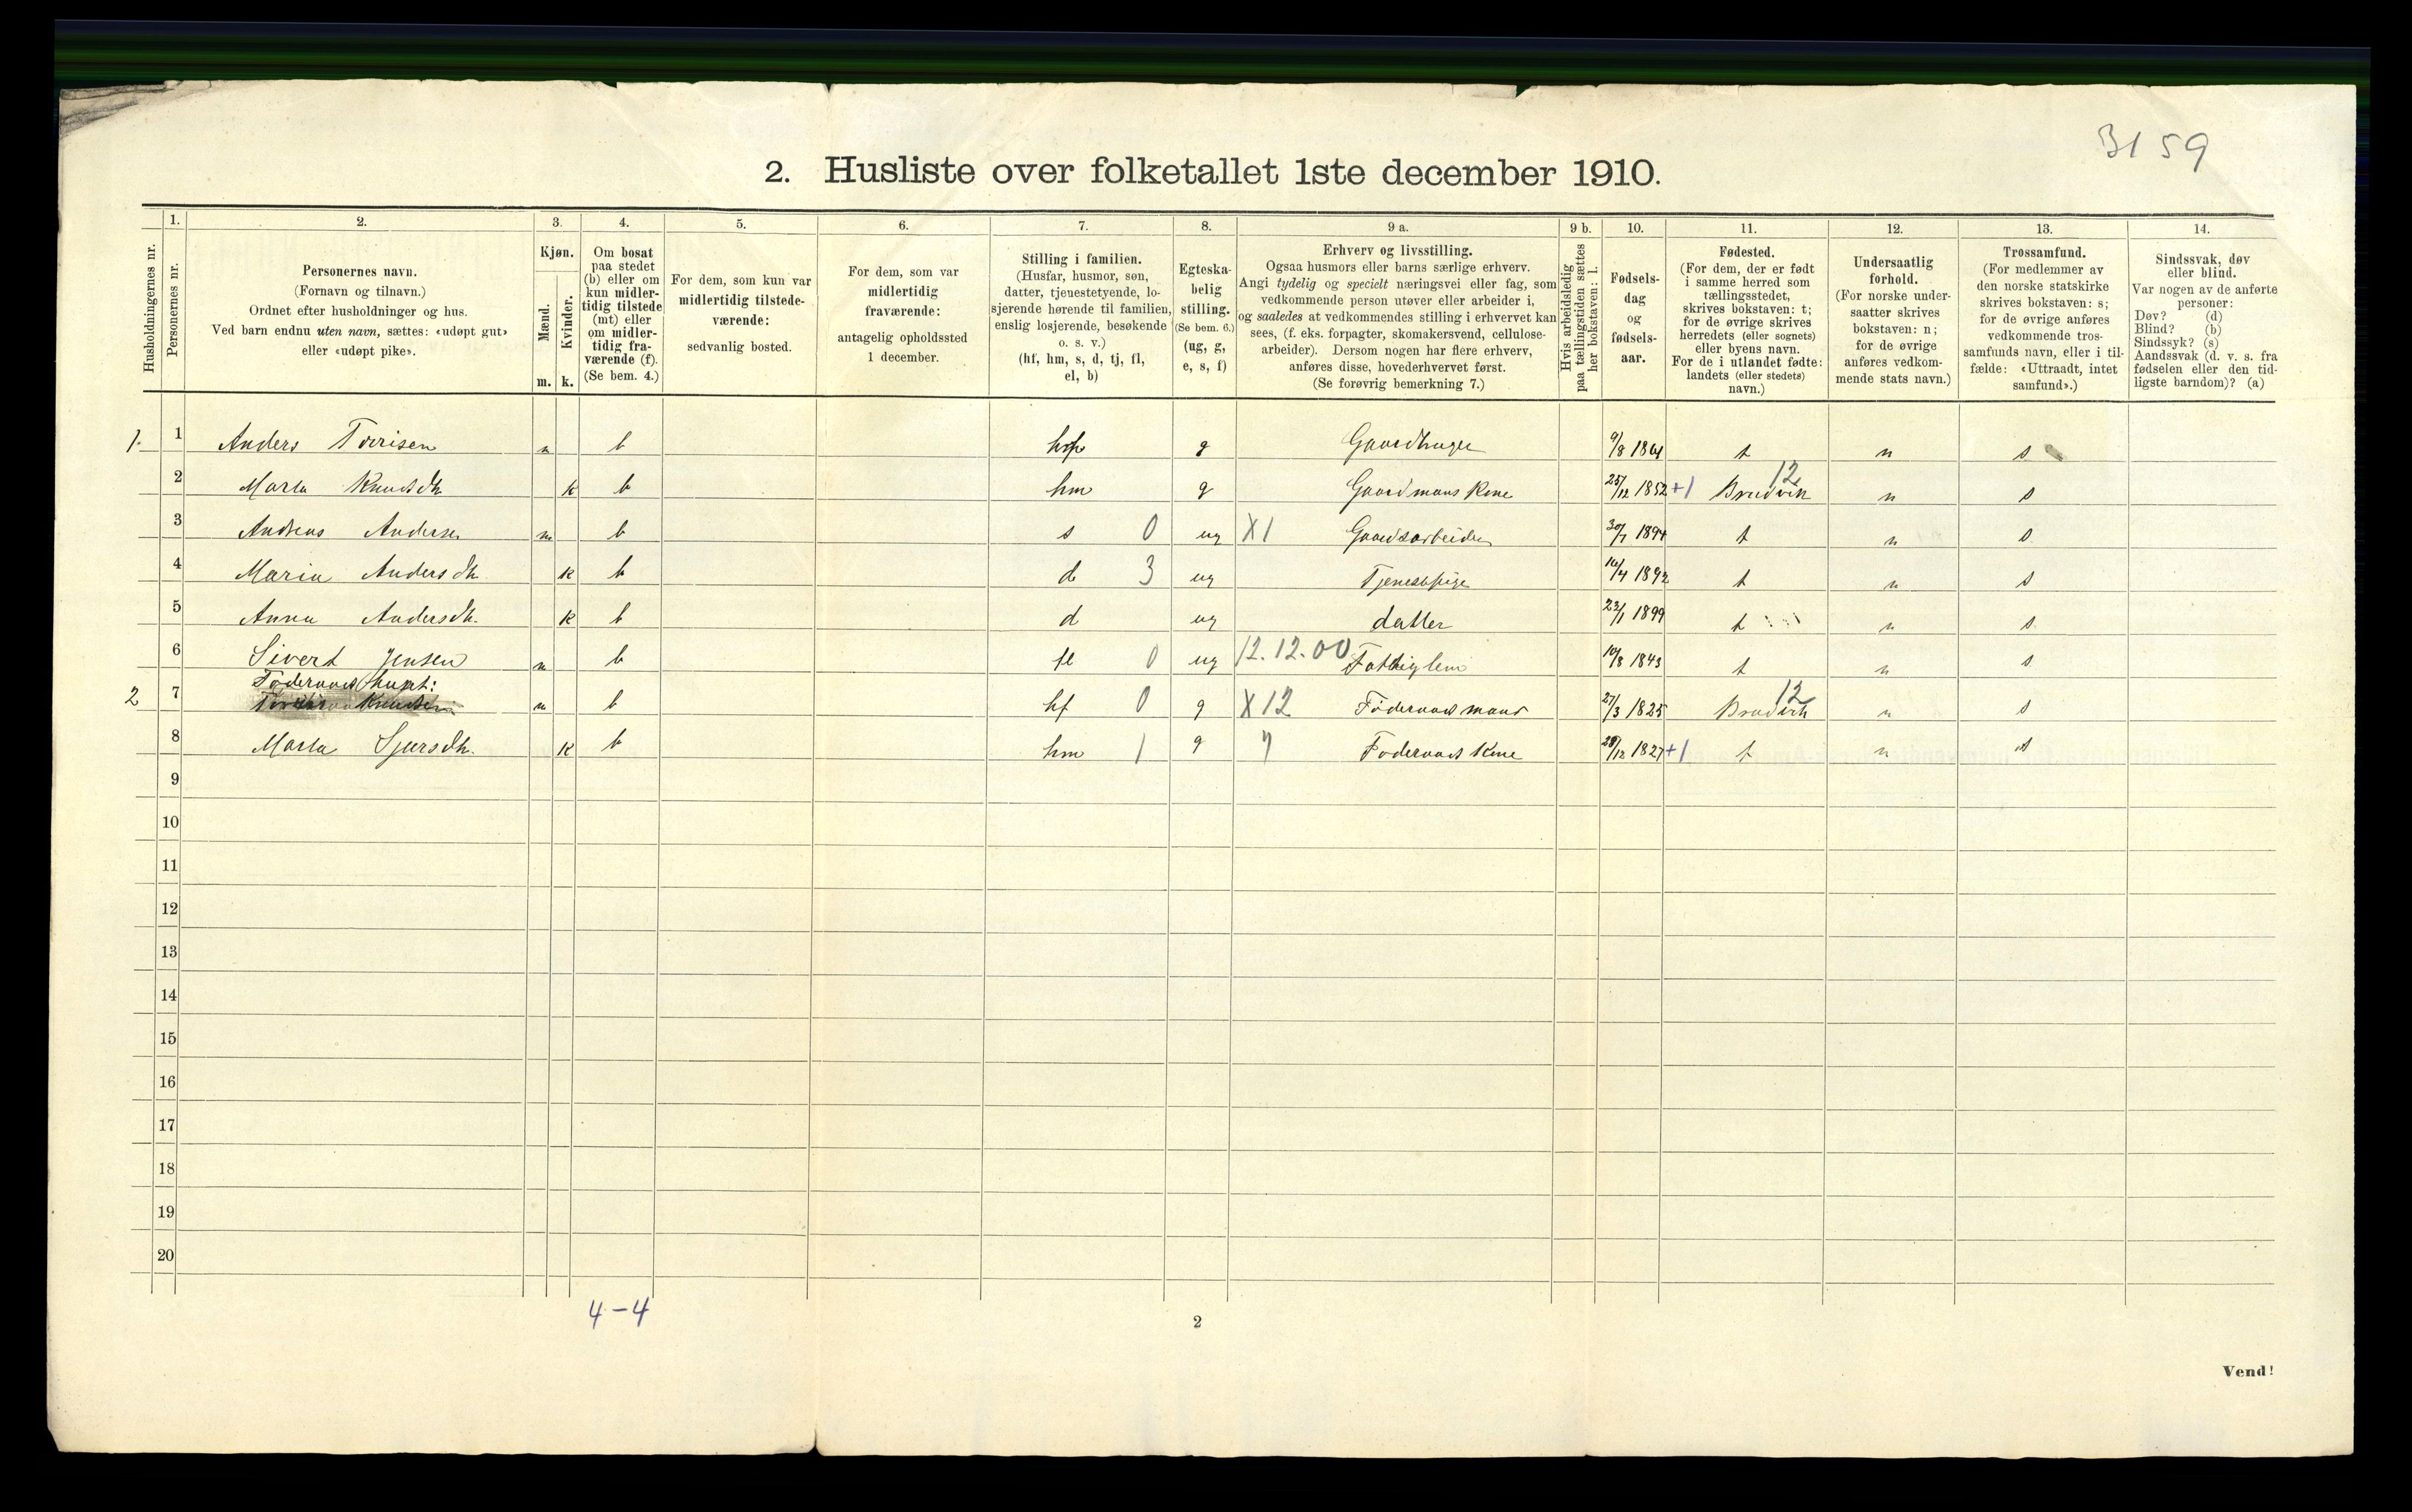 3159
2. Husliste over folketallet 1ste december 1910.
Husholdningernes nr.
1.
Personernes nr.
2.
Personernes navn.
(Fornavn og tilnavn.)
Ordnet efter husholdninger og hus.
Ved barn endnu uten navn, sættes: «udøpt gut»
eller «udøpt pike».
3.
Kjøn.
Mænd.
Kvinder.
m. k.
4.
Om bosat
paa stedet
(b) eller om
kun midler-
tidig tilstede
(mt) eller
om midler-
tidig fra-
værende (f).
(Se bem. 4.)
5.
For dem, som kun var
midlertidig tilstede-
værende:
sedvanlig bosted.
6.
For dem, som var
midlertidig
fraværende:
antagelig opholdssted
1 december.
7.
Stilling i familien.
(Husfar, husmor, søn,
datter, tjenestetyende, lo-
sjerende hørende til familien,
enslig losjerende, besøkende
o. s. v.)
(hf, hm, s, d, tj, fl,
el, b)
8.
Egteska-
belig
stilling.
(Se bem. 6.)
(ug, g,
e, s, f)
9 a.
Erhverv og livsstilling.
Ogsaa husmors eller barns særlige erhverv.
Angi tydelig og specielt næringsvei eller fag, som
vedkommende person utøver eller arbeider i,
og saaledes at vedkommendes stilling i erhvervet kan
sees, (f. eks. forpagter, skomakersvend, cellulose-
arbeider). Dersom nogen har flere erhverv,
anføres disse, hovederhvervet først.
(Se forøvrig bemerkning 7.)
9 b.
Hvis arbeidsledig
paa tællingstiden sættes
her bokstaven: l.
10.
Fødsels-
dag
og
fødsels-
aar.
11.
Fødested.
(For dem, der er født
i samme herred som
tællingsstedet,
skrives bokstaven: t;
for de øvrige skrives
herredets (eller sognets)
eller byens navn.
For de i utlandet fødte:
landets (eller stedets)
navn.)
12.
Undersaatlig
forhold.
(For norske under-
saatter skrives
bokstaven: n;
for de øvrige
anføres vedkom-
mende stats navn.)
13.
Trossamfund.
(For medlemmer av
den norske statskirke
skrives bokstaven: s;
for de øvrige anføres
vedkommende tros-
samfunds navn, eller i til-
fælde: «Uttraadt, intet
samfund».)
14.
Sindssvak, døv
eller blind.
Var nogen av de anførte
personer:
Døv? (d)
Blind? (b)
Sindssyk? (s)
Aandssvak (d. v. s. fra
fødselen eller den tid-
ligste barndom)? (a)
1. 1 Anders m b g 9/8 t n s
2 Marta Knudsdtr k b hm g Gaardmans Kone 25/12 1852 +1 Bruvik 12 n s
3 Andreas Andersen m b s 0 ug X1 Gaardsarbeider 30/7 1894 t n s
4 Maria Andersdtr k b d 3 ug Tjenestpige 1892 t n s
5 Anna Andersdtr. k b d ug datter 1899 t n s
6 Sivert Jensen m b fl 0 ug 12.12.00 Fattiglem 10/8 1843 t n s
Føderaads
2 7 Knudsen m b hf 0 g X12 Føderaadsmand 27/3 1825 Bruvik 12 n s
8 Marta Sjursdtr. k b hm 1 g 7 Føderaads Kone 1827 +1 t n s
9
10
11
12
13
14
15
16
17
18
19
20
4-4
2
Vend!